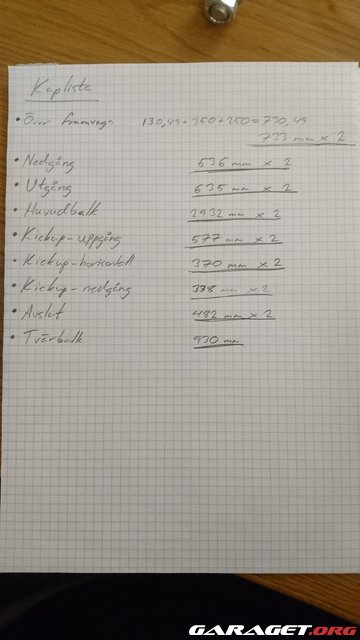 Kaplista
• Över framvagn 130,49 + 350 + 250 = 730,49
733 mm x 2
• Nedgång 536 mm x 2
• Utgång 635 mm x 2
• Huvudbalk 2932 mm x 2
• Kickup-uppgång 577 mm x 2
• Kickup-horisontell 370 mm x 2
• Kickup-nedgång 338 mm x 2
• Avslut 482 mm x 2
• Tvärbalk 930 mm
GARAGET.ORG